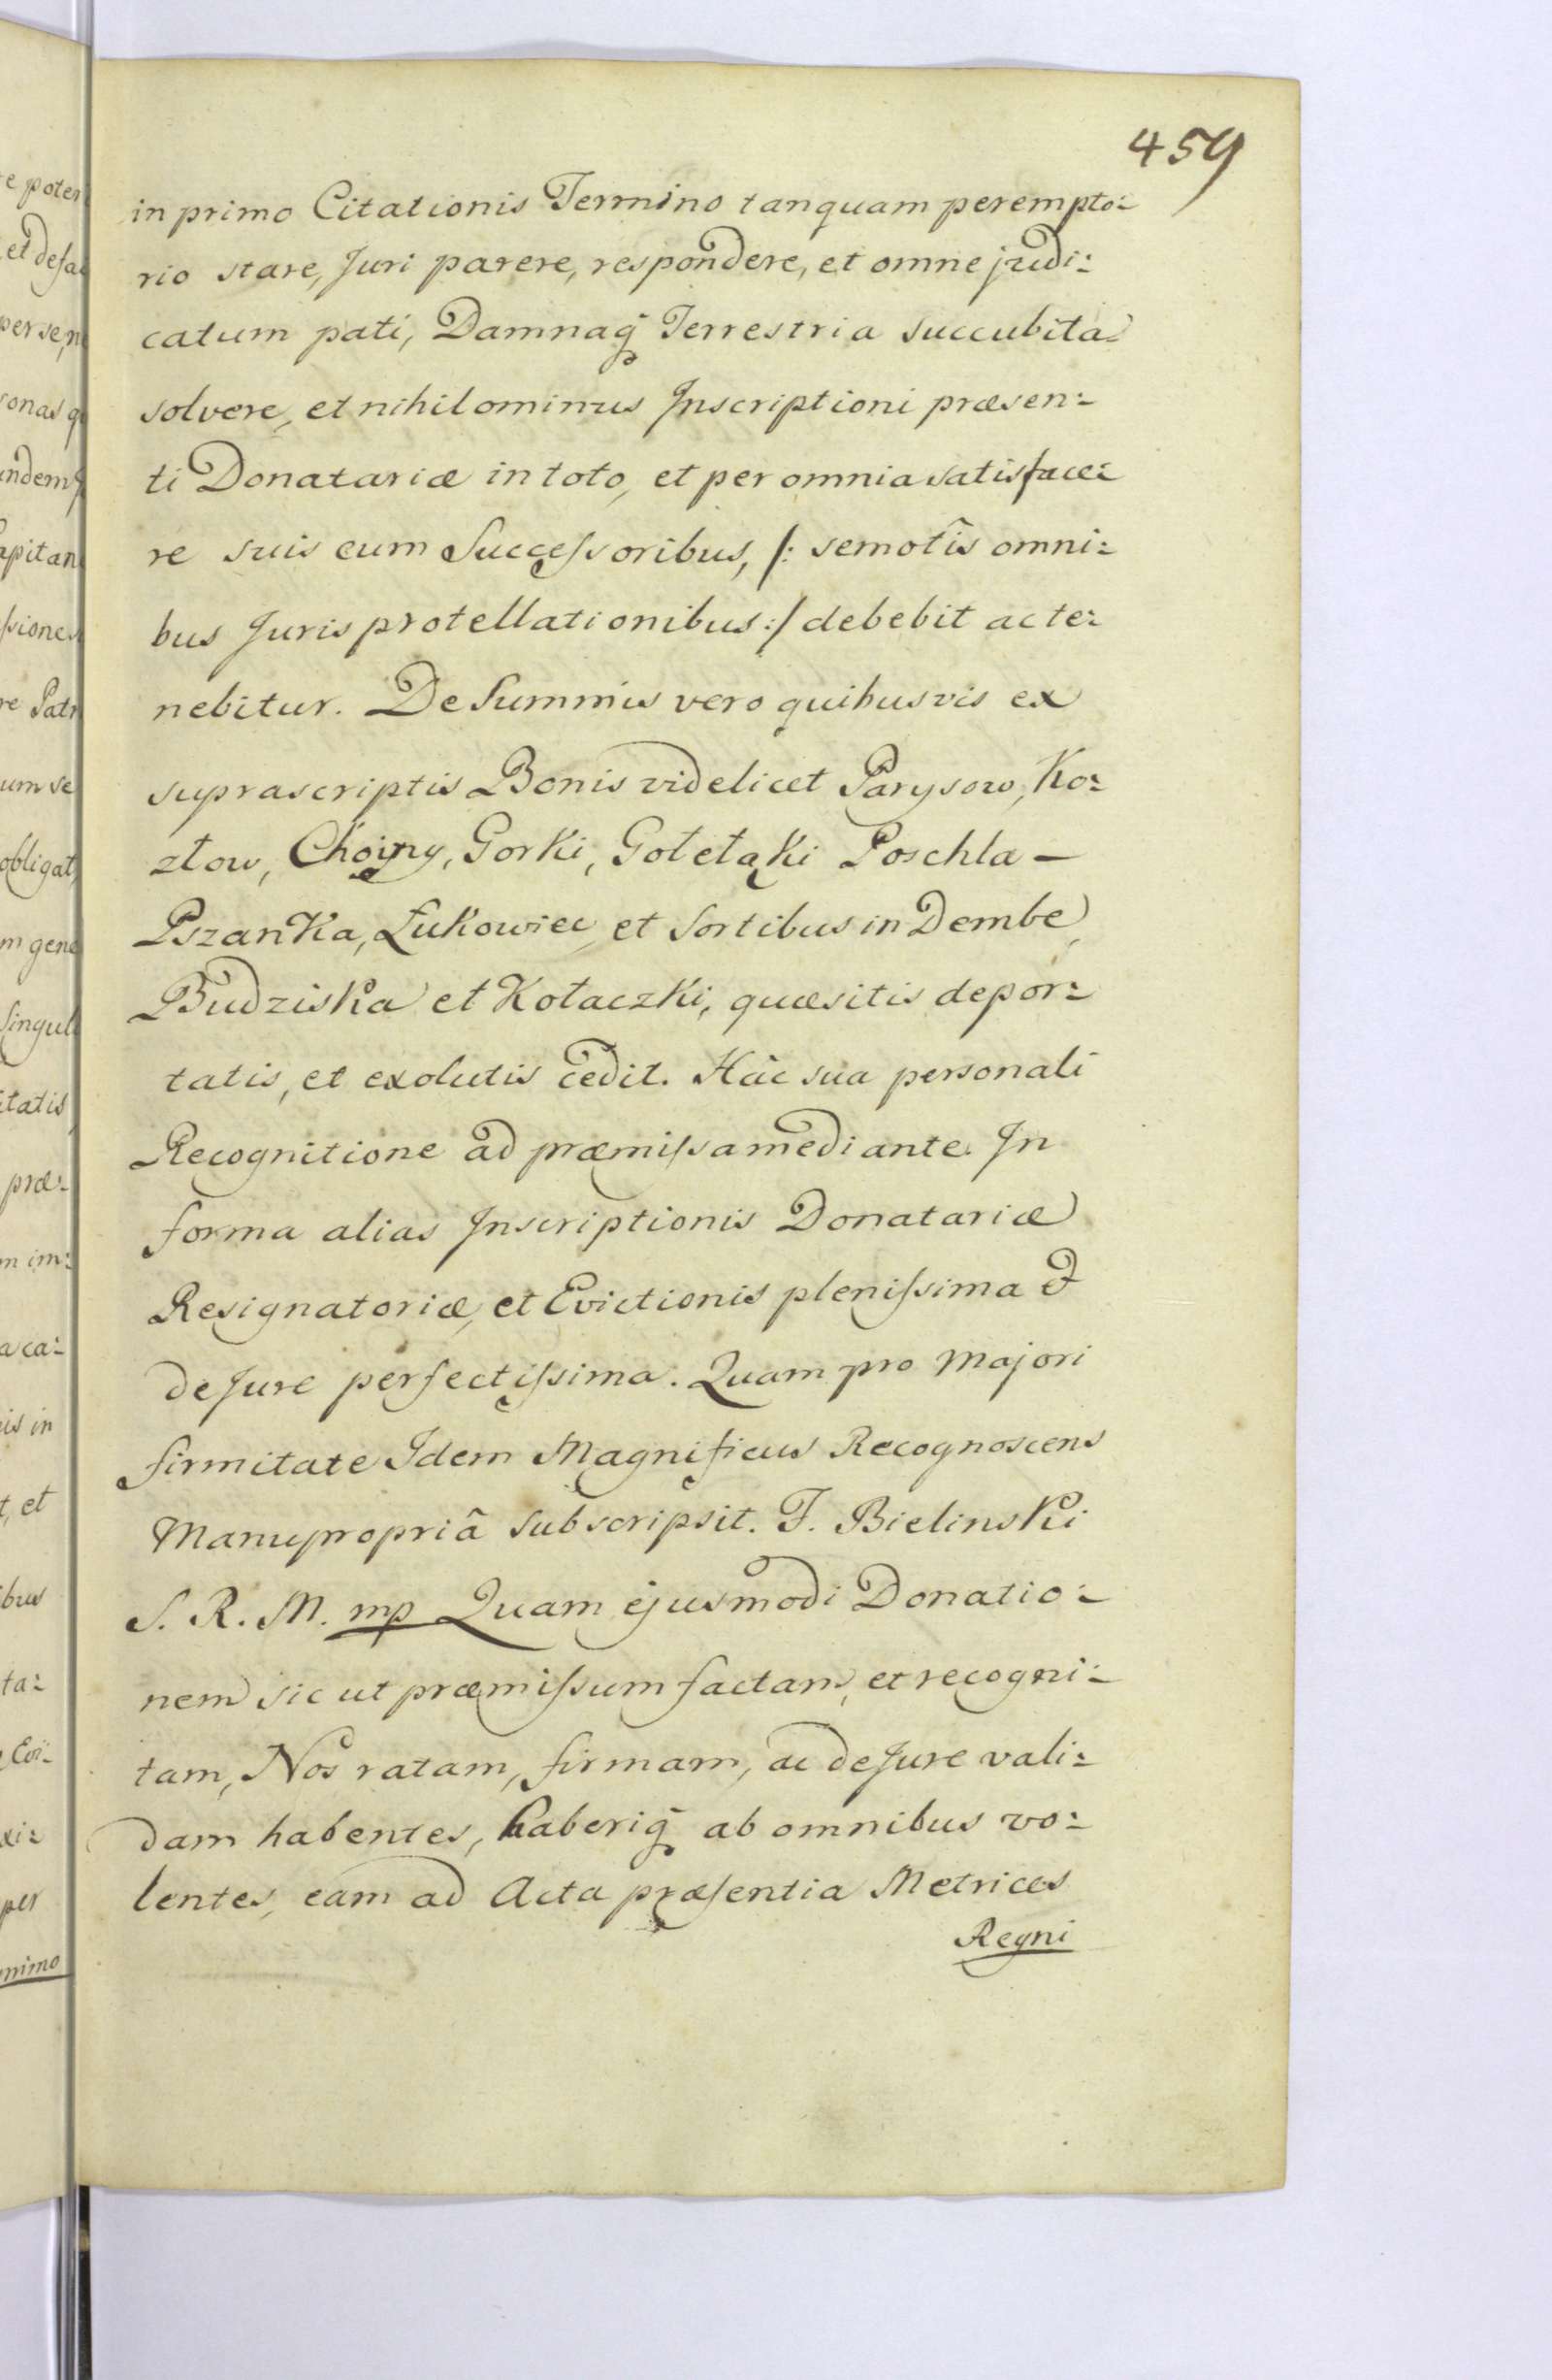 459
in primo Citationis Termino tanquam perempto:
rio stare, Juri parere, respondere, et omne judi:
catum pati, Damnaq̃ Terrestria Succubita
solvere, et nihilominus Inscriptioni præsen:
ti Donatariæ in toto, et per omnia satisface:
re suis cum Successoribus, /: semotis omni:
bus Juris protellationibus :/ debebit ac te:
nebitur. De Summis vero quibusvis ex
suprascriptis Bonis videlicet Parysow, Ko:
złow, Choiny, Gorki, Gołełąki Poschla –
Pszanka, Łukowiec, et Sortibus in Dembe,
Budziska et Kołaczki, quæsitis depor:
tatis, et exolutis cedit. Hâc sua personali
Recognitione ad præmissa mediante. In
forma alias Inscriptionis Donatariæ
Resignatoriæ, et Evictionis plenissima &
de Jure perfectissima. Quam pro Majori
firmitate Idem Magnificus Recognoscens
Manu propriâ Subscripsit. F. Bielinski
S. R. M. mp Quam ejusmodi Donatio:
nem sic ut præmissum factam, et recogni:
tam, Nos ratam, firmam, ac de Jure vali:
dam habentes, haberiq̃ ab omnibus vo:
lentes, eam ad Acta præsentia Metrices
Regni